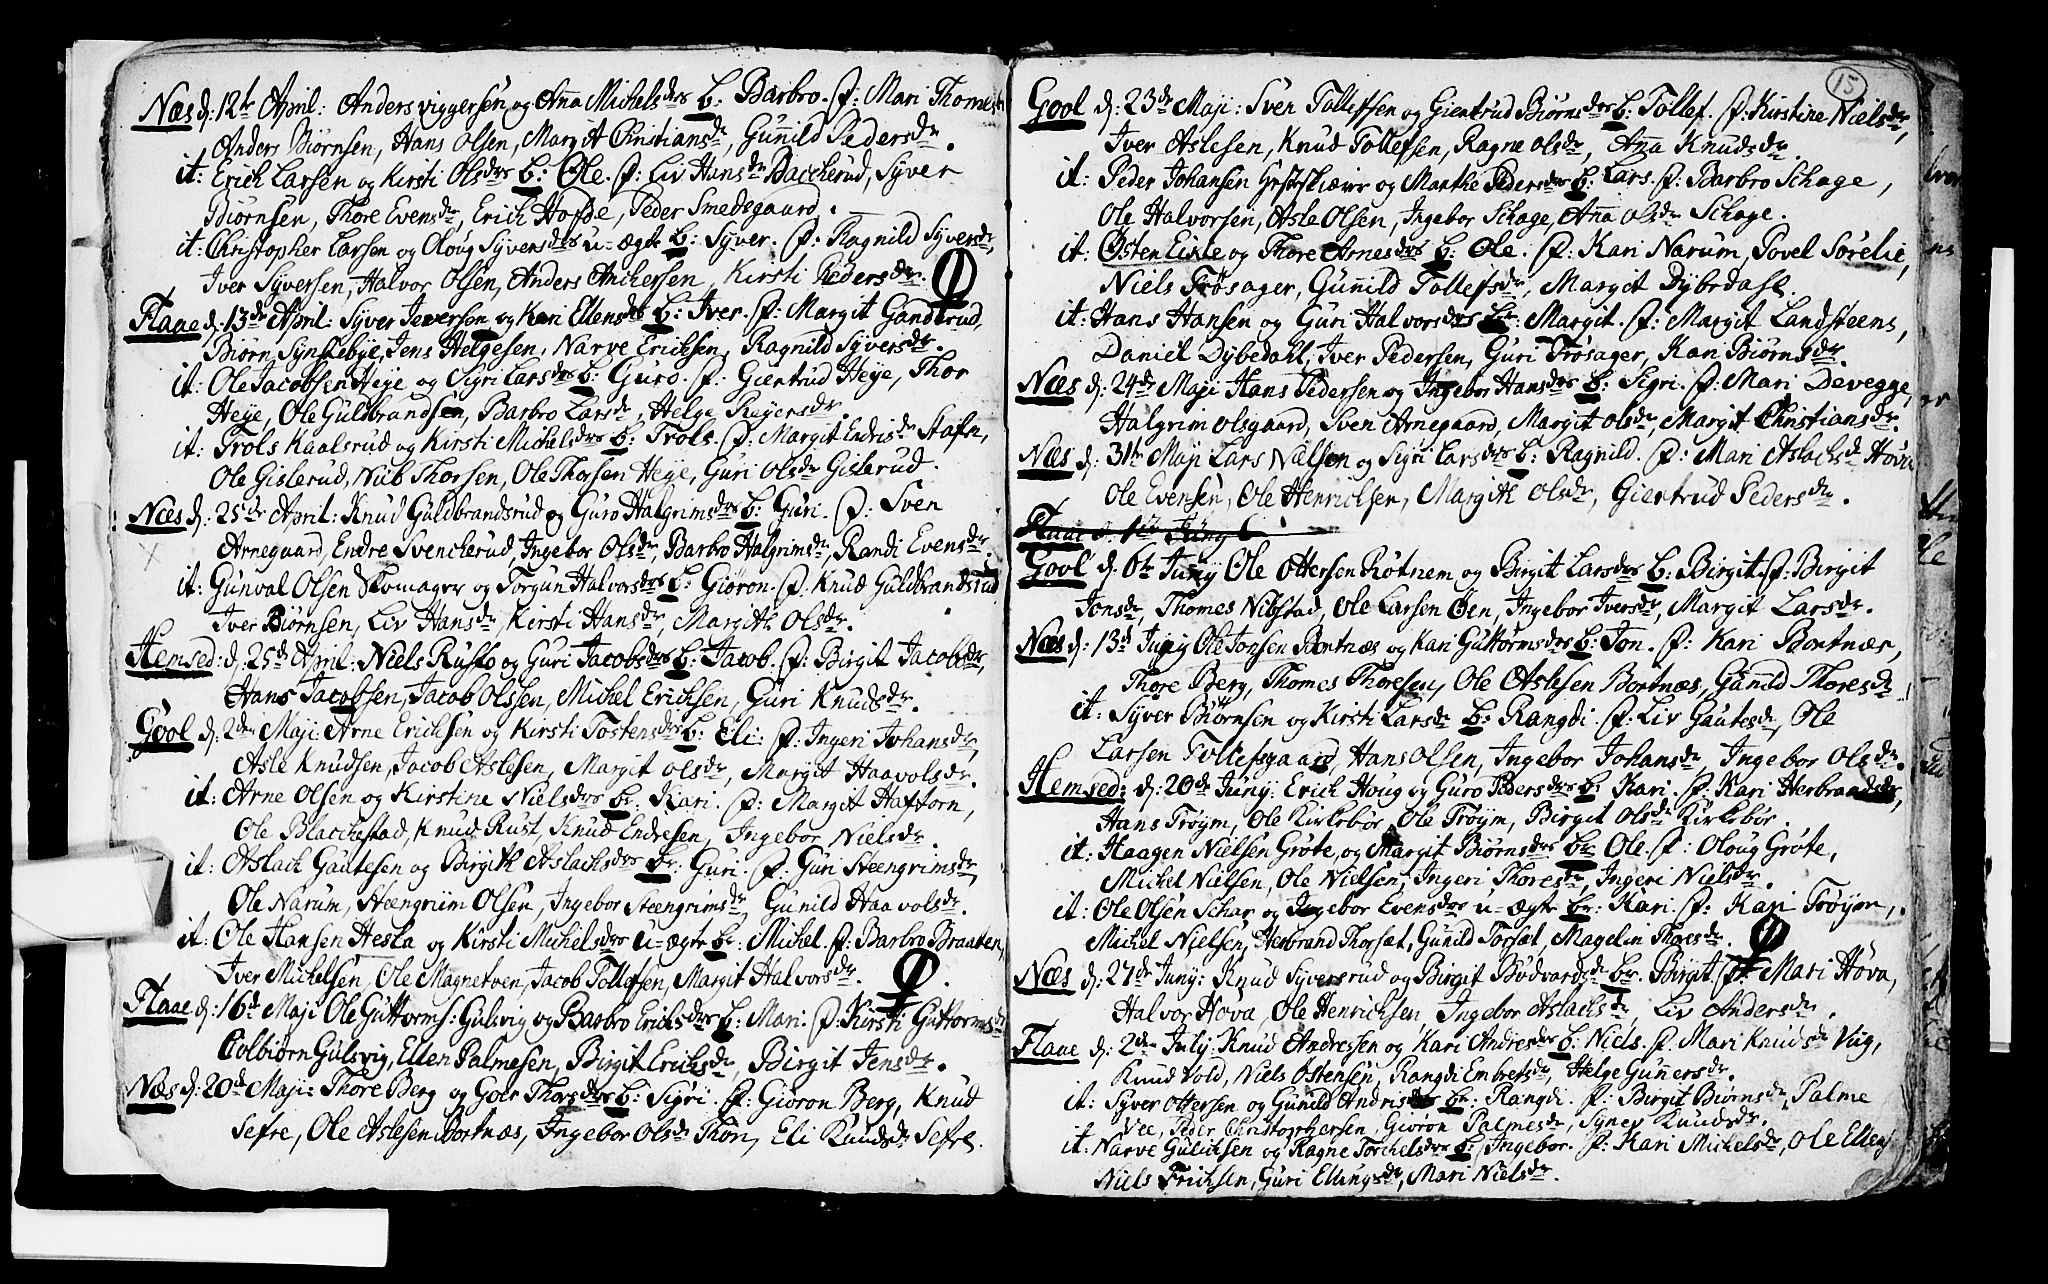 Næs d: 12te April: Anders Viggersen og Anna Michelsdrs b: Barbro. f: Mari Thomesdr
Anders Biørnsen, Hans Olsen, Margit Christiansdr, Gunild Pedersdr.
it: Erich Larsen og Kirsti Olsdrs b: Ole. f: Liv Hansdr Baccherud, Syver
Biørnsen, Thore Evensdr, Erich Hofde, Peder Smedsgaard.
it: Christopher Larsen og Oloug Syversdrs u-ægte b: Syver. f: Ragnild Syversdr,
Iver Syversen, Halvor Olsen, Anders Anchersen, Kirsti Pedersdr.
Flaae d: 13de April: Syver Iversen og Kari Ellensdrs b: Iver. f: Margit Gandrud,
Biørn Synstebye, Jens Helgesen, Narve Ericksen, Ragnild Syversdr.
it: Ole Jacobsen Heye og Sigri Larsdrs b: Guro. f: Giertrud Heye, Thor
Heye, Ole Guldbrandsen, Barbro Larsdr, Helge Reyersdr.
it: Trols Kaalsrud og Kirsti Michelsdrs b: Trols. f: Margit Endrisdr Stafn,
Ole Gislerud, Nieb Thorsen, Ole Thorsen Heye, Guri Olsdr Gislerud.
Næs d: 25de April: Knud Guldbrandsrud og Guro Halgrimsdrs b: Guri. f: Sven
Arnegaard, Endre Svenckerud, Ingebor Olsdr, Barbro Halgrimsdr, Randi Evensdr.
it: Gunval Olsen og Torgun Halvorsdrs b: Giøron. f: Knud Guldbrandsrud
Iver Biørnsen, Liv Hansdr, Kirsti Hansdr, Margith Olsdr.
Hemsed: d: 25de April: Niels Rusto og Guri Jacobsdrs b: Jacob. f: Birgit Jacobsdr,
Hans Jacobsen, Jacob Olssen, Michel Erichsen, Guri Knudsdr.
Gool d: 2den Maji: Arne Erichsen og Kirsti Tostensdrs b: Eli: f: Ingeri Johansdr,
Asle Knudsen, Jacob Aslesen, Margit Olsdr, Margit Haavolsdr.
it: Arne Olsen og Kirstine Nielsdrs b: Kari. f: Margit Haftorn,
Ole Blacchestad, Knud Rust, Knud Endresen, Ingebor Nielsdr.
it: Aslach Gautesen og Birgith Aslachsdrs b: Guri. f: Guri Steengrimsdr,
Ole Narum, Steengrim Olsen, Ingebor Steengrimsdr, Gunild Haavolsdr.
it: Ole Hansen Heska og Kirsti Michelsdrs u-ægte b: Michel. f: Barbro Braaten,
Iver Michelsen, Ole Magnetven, Jacob Tollefsen, Margit Halvorsdr.
Flaae d: 16d Maji Ole Guttorms: Gulsvig og Barbro Erichsdrs b: Mari. f: Kirsti Guttormsdr
Colbiørn Gulsvig, Ellen Palmesen, Birgit Erichsdr, Birgit Jensdr.
Næs d: 20de Maji: Thore Berg og Goer Thorsdrs b: Sigri. f: Giøron Berg, Knud
Sefre, Ole Aslesen Bortnæs, Ingebor Olsdr Thon, Eli Knudsdr Sefre.
15
Gool d: 23de Maji: Sven Tollefsen og Giertrud Biørnsdrs b: Tollef. f: Kirstine Nielsdr,
Iver Aslesen, Knud Tollefsen, Ragne Olsdr, Anna Knudsdr.
it: Peder Johansen og Marthe Pedersdrs b: Lars. f: Barbro Schage,
Ole Halvorsen, Asle Olsen, Ingebor Schage, Anna Olsdr Schage.
it: Østen Eixle og Thore Arnesdrs b: Ole. f: Kari Narum, Povel Sørelie,
Niels Trøsager, Gunild Tollefsdr, Margit Dybedahl.
it: Hans Hansen og Guri Halvorsdrs b: Margit. f: Margit Landsteens,
Daniel Dybedahl, Iver Pedersen, Guri Trøsager, Kari Biørnsdr.
Næs d: 24de Maji Hans Pedersen og Ingebor Hansdrs b: Sigri. f: Mari Devegge,
Halgrim Olsgaard, Sven Arnegaard, Margit Olsdr, Margit Christiansdr.
Næs d: 31te Maji Lars Nielsen og Sigri Larsdrs b: Ragnild. f: Mari Aslachsdr Hova
Ole Evensen, Ole Henrichsen, Margith Olsdr, Giertrud Pedersdr.
Flaae d. 1te Juny
Gool d: 6te Juny Ole Ottersen Røtnem og Birgit Larsdrs b: Birgit. f: Birgit
Jonsdr, Thomes Nibstad, Ole Larsen Øen, Ingebor Iversdr, Margit Larsdr.
Næs d: 13d Juny Ole Jonsen Bortnæs og Kari Guttormsdrs b: Jon. f: Kari Bortnæs,
Thore Berg, Thomes Thoresen, Ole Aslesen Bortnæs, Gunild Thoresdr
it: Syver Biørnsen og Kirsti Larsdr b: Rangdi. f: Liv Gautesdr, Ole
Larsen Tollefsgaard, Hans Olsen, Ingebor Johansdr, Ingebor Olsdr.
Hemsed: d: 20de Juny: Erich Houg og Guro Pedersdrs b: Kari. f: Kari Herbrandsdr,
Hans Trøym, Ole Kirkebør, Ole Trøym, Birgit Olsdr Kirkebør.
it: Haagen Nielsen Grøte, og Margit Biørnsdrs b: Ole. f: Oloug Grøte,
Michel Nielsen, Ole Nielsen, Ingeri Thoresdr, Ingeri Nielsdr.
it: Ole Olsen Schar og Ingebor Evensdrs u-ægte b: Kari. f: Kari Trøym,
Michel Nielsen, Herbrand Thorsæt, Gunild Torsæt, Magelin Thoresdr.
Næs d: 27de Juny: Knud Syversrud og Birgit Bødvardsdr b: Birgit f: Mari Hova,
Halvor Hova, Ole Henrichsen Ingebor Aslachsdr, Liv Andersdr.
Flaae d: 2den July: Knud Andressen og Kari Andresdrs b: Niels. f. Mari Knudsdr Viig,
Knud Vold, Niels Østensen, Rangdi Embretsdr, Helge Gunersdr.
it: Syver Ottersen og Gunild Andrisdrs b: Rangdi. f: Birgit Biørnsdr, Palme
Vee, Peder Christophersen, Giøron Palmesdr, Synev Knudsdr.
it: Narve Gulichsen og Ragne Torchelsdrs b: Ingebor. f: Kari Michelsdr, Ole Ellens
Niels Erichsen, Guri Ellingsdr, Mari Nielsdr.